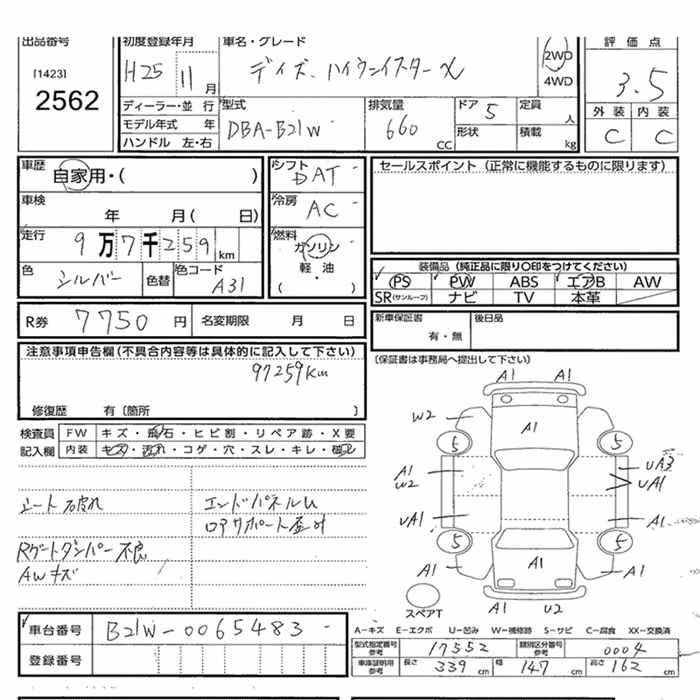 出品番号 初度登録年月 車名・グレード 評価点
[1423] H25 11月 デイズ ハイウェイスターX 2WD 3.5
2562 4WD
ディーラー・並行 型式 排気量 ドア 5 定員 人 外装 内装
モデル年式 年 DBA-B21W 660 CC 形状 積載 kg C C
ハンドル 左・右
車歴 自家用・( ) シフト DAT セールスポイント (正常に機能するものに限ります)
車検 年 月( 日) 冷房 AC
走行 9万7千259km 燃料 ガソリン
軽・油
( ・ )
色 シルバー 色替 色コード A31 装備品 (純正品に限り○印をつけてください)
PS PW ABS エアB AW
SR(サンルーフ) ナビ TV 本革
R券 7750円 名変期限 月 日 新車保証書 有・無 後日品
注意事項申告欄(不具合内容等は具体的に記入して下さい) (保証書は事務局へ提出して下さい)
97259Km
修復歴 有〔箇所 〕
検査員 FW キズ・飛石・ヒビ割・リペア跡・X要
記入欄 内装 キズ・汚れ・コゲ・穴・スレ・キレ・破レ
シート破れ エンドパネルU
ロアサポート
Rゲートダンパー不良
AWキズ
A1 A1
W2 A1
5 5
A1 UA3
W2 UA1
UA1 A1
5 5
A1 A1 A1
スペアT A1 U2
車台番号 B21W-0065483
登録番号
A−キズ E−エクボ U−凹み W−補修跡 S−サビ C−腐食 XX−交換済
型式指定番号 参考 17552 類別区分番号 参考 0004
車庫証明用 参考 長さ 339 cm 幅 147 cm 高さ 162 cm